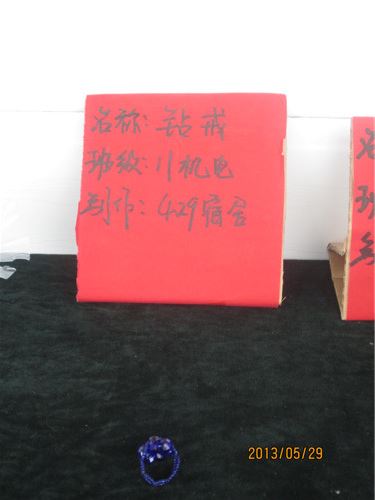 名称：钻戒
班级：11机电
制作：429宿舍
名
班
2013/05/29